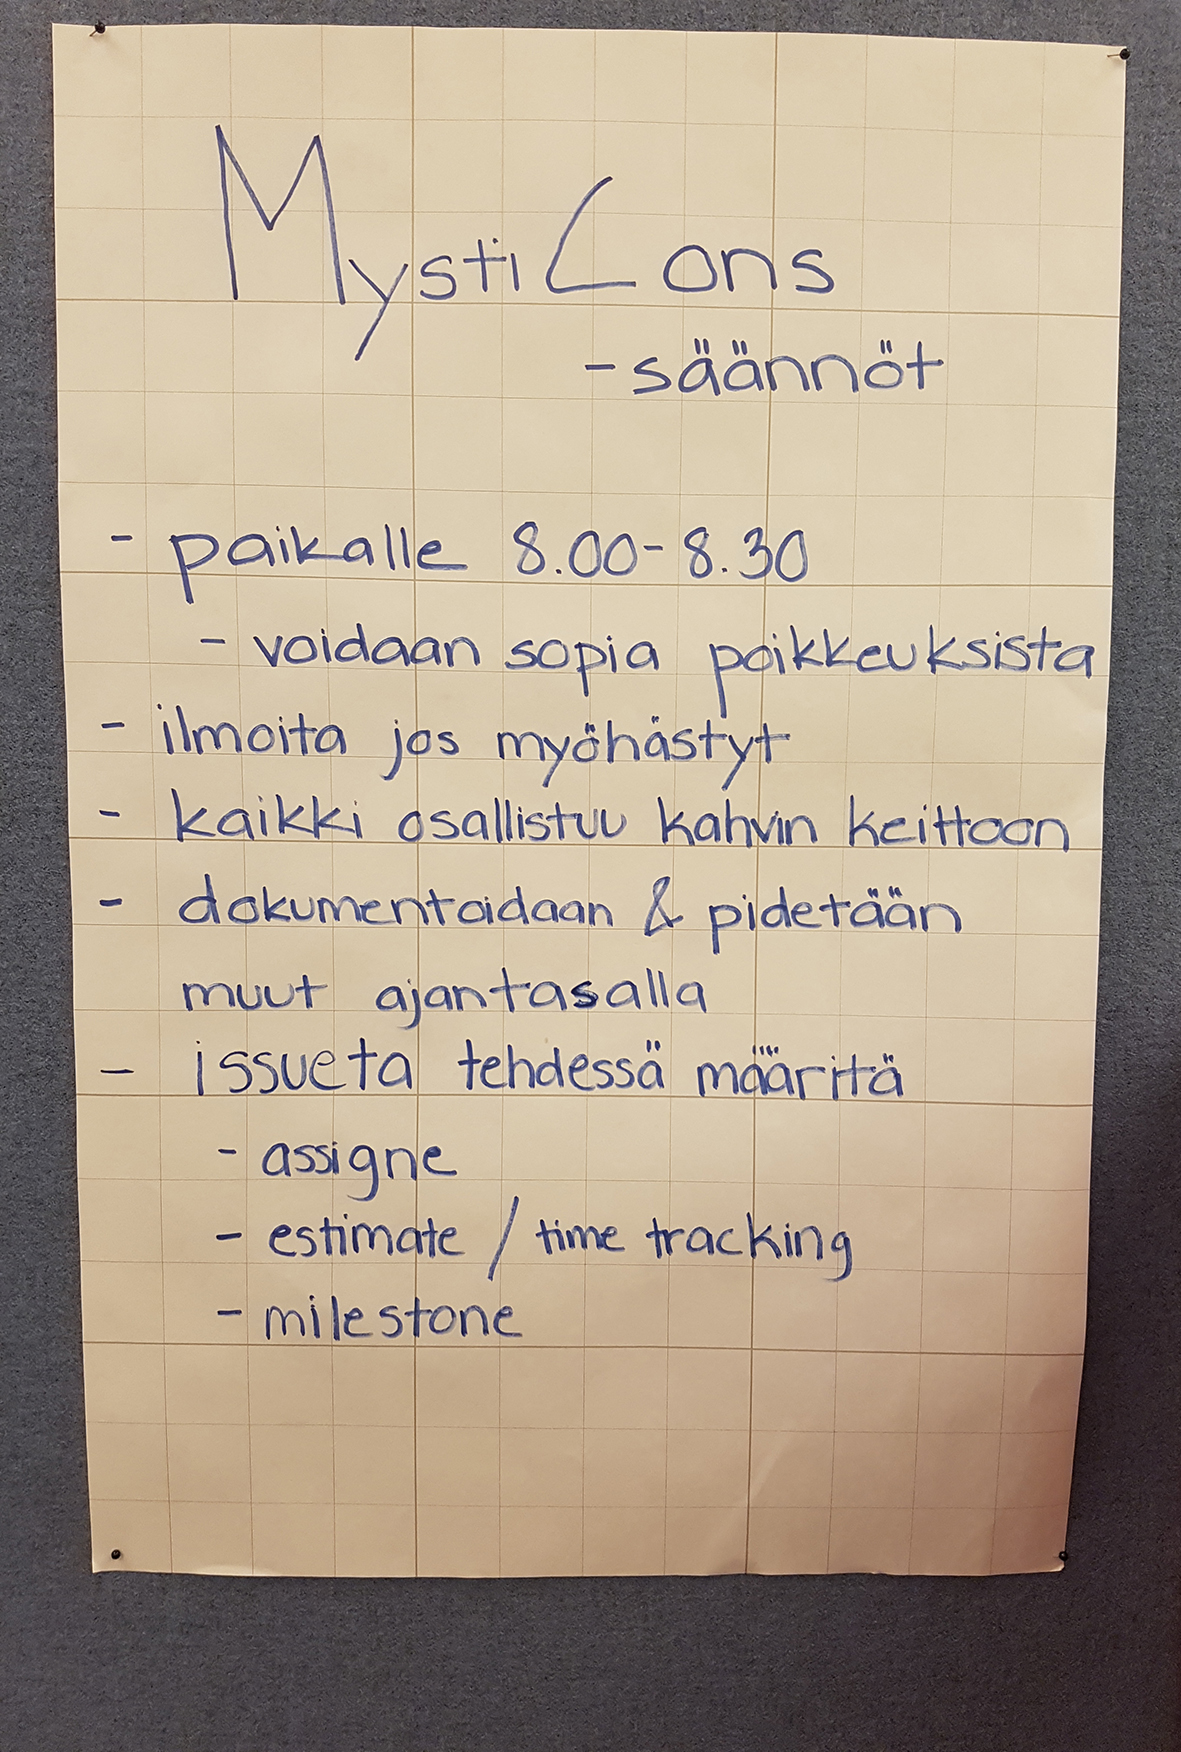 MystiCons
-säännöt
- paikalle 8.00-8.30
- voidaan sopia poikkeuksista
- ilmoita jos myöhästyt
- kaikki osallistuu kahvin keittoon
- dokumentoidaan & pidetään
muut ajantasalla
- issueta tehdessä määritä
- assigne
- estimate / time tracking
- milestone